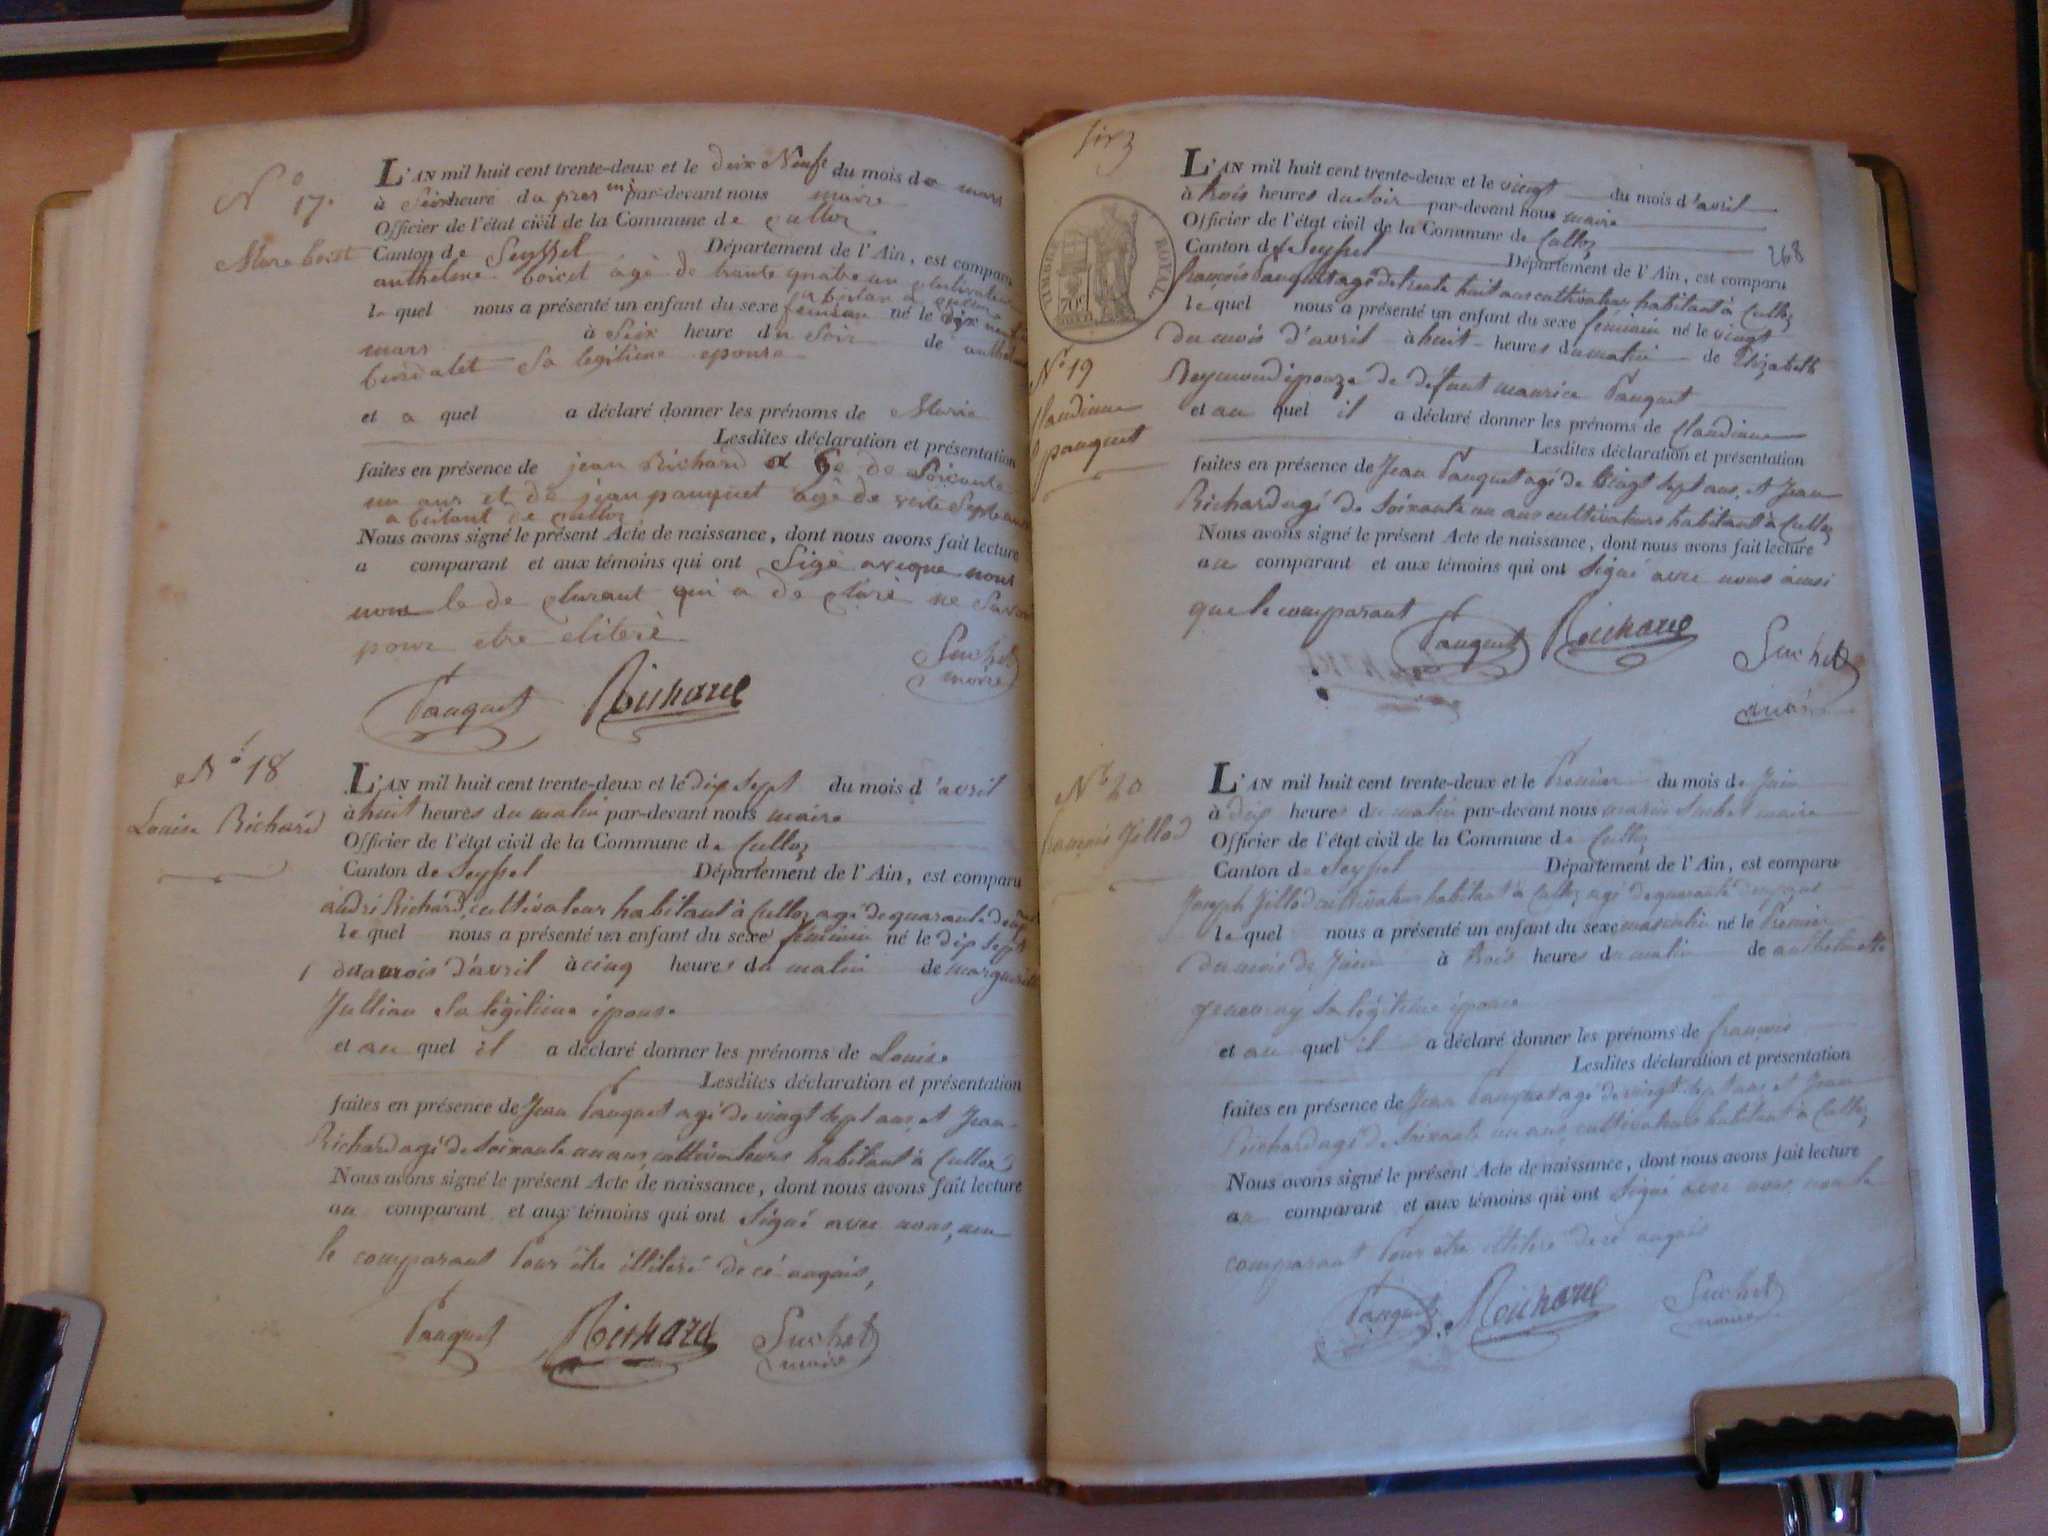 N° 17.
Marie boist
L'AN mil huit cent trente-deux et le dix Neuf du mois de mars
à Seix heure du par-devant nous maire
Officier de l'état civil de la Commune de culloz
Canton de Seyssel Département de l'Ain, est comparu
anthelme boict âgè de trante quatre an cultivateur
abitan a
le quel nous a présenté un enfant du sexe féminin né le dix neuf
mars à Seix heure du Soir de anthel
burdalet Sa legitime epouse
et a quel a déclaré donner les prénoms de Marie
Lesdites déclaration et présentation
faites en présence de jean Richard de Soixante
un ans et de jean pauquet agè de Septans
abitant de culloz
Nous avons signé le présent Acte de naissance, dont nous avons fait lecture
a comparant et aux témoins qui ont Sigè aveque nous
non le de clurant qui a de clarè ne Savoir
pour etre eliterè
Suchet
maire
Pauquet Richard
N° 18
Louise Richard
L'AN mil huit cent trente-deux et le dix sept du mois d'avril
à huit heures du matin par-devant nous maire
Officier de l'état civil de la Commune de Culloz
Canton de Seyssel Département de l'Ain, est comparu
andré Richard, cultivateur habitant à Culloz agé de quarante deux
le quel nous a présenté un enfant du sexe féminin né le dix sept
du mois d'avril à cinq heures du matin de marguerite
Jullian sa légitime épouse
et au quel il a déclaré donner les prénoms de Louise
Lesdites déclaration et présentation
faites en présence de Jean Pauquet agé de vingt sept ans, et Jean
Richard agé de soixante un ans, cultivateurs habitant à Culloz
Nous avons signé le présent Acte de naissance, dont nous avons fait lecture
au comparant et aux témoins qui ont Signé avec nous, non
le comparant Pour être illiteré de ce anquis,
Pauquet Richard Suchet
maire
268
TIMBRE ROYAL
N° 19
Claudinne
pauquet
L'AN mil huit cent trente-deux et le vingt du mois d'avril
à trois heures du soir par-devant nous maire
Officier de l'état civil de la Commune de Culloz
Canton de Seyssel Département de l'Ain, est comparu
françois Pauquet agé de trente huit ans cultivateur habitant à Culloz
le quel nous a présenté un enfant du sexe féminin né le vingt
du mois d'avril à huit heures du matin de Elizabeth
Reymond épouze de défunt maurice Pauquet
et au quel il a déclaré donner les prénoms de Claudinne
Lesdites déclaration et présentation
faites en présence de Jean Pauquet agé de vingt sept ans, et Jean
Richard agé de soixante un ans cultivateurs habitant à Culloz
Nous avons signé le présent Acte de naissance, dont nous avons fait lecture
au comparant et aux témoins qui ont signé avec nous ainsi
que le comparant
Pauquet Richard Suchet
maire
N° 20
françois Jillod
L'AN mil huit cent trente-deux et le Premier du mois de Juin
à dix heures du matin par-devant nous marin Suchet maire
Officier de l'état civil de la Commune de Culloz
Canton de Seyssel Département de l'Ain, est comparu
Joseph Jillod cultivateur habitant à Culloz agé de quarante
le quel nous a présenté un enfant du sexe masculin né le Premier
du mois de Juin à trois heures du matin de anthelmette
sa légitime épouse
et au quel il a déclaré donner les prénoms de françois
Lesdites déclaration et présentation
faites en présence de Jean Pauquet agé de vingt sept ans et Jean
Richard agé de soixante un ans, cultivateurs habitant à Culloz
Nous avons signé le présent Acte de naissance, dont nous avons fait lecture
au comparant et aux témoins qui ont signé avec nous non le
comparant Pour être illiteré de ce anquis
Pauquet Richard Suchet
maire